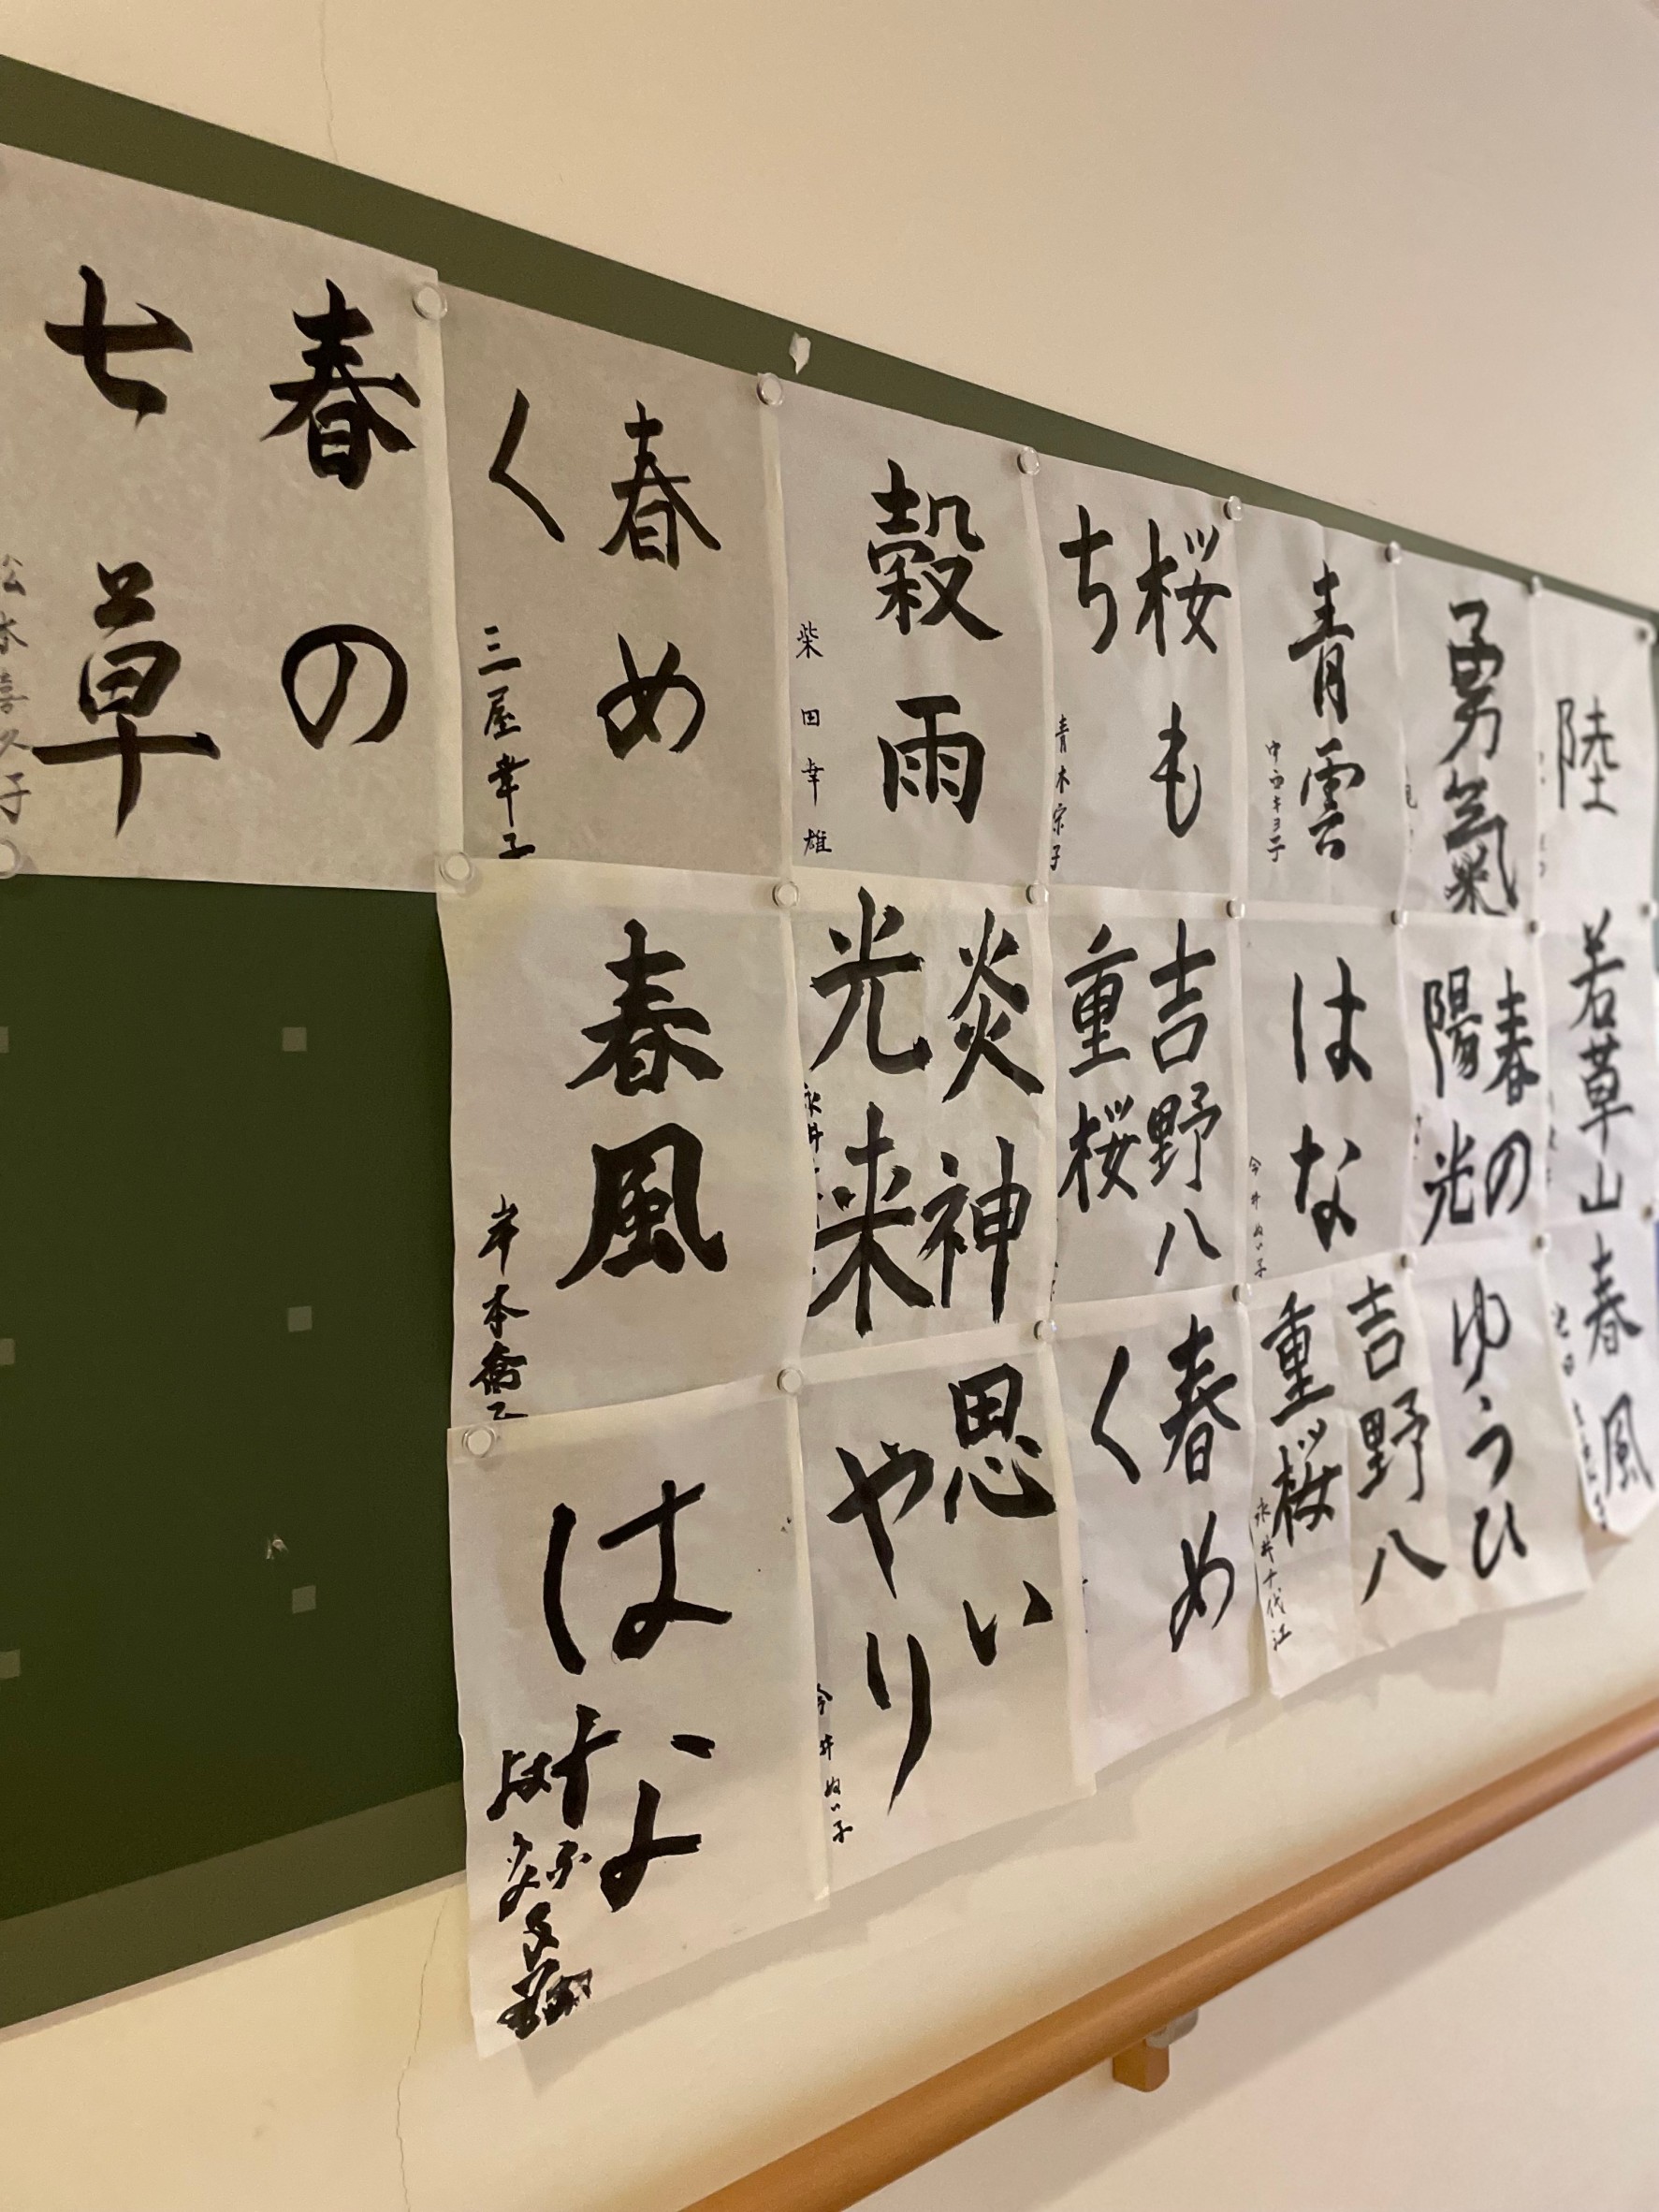 春の
七草
春め
く
三屋幸子
穀雨
柴田幸雄
桜も
ち
青木宗子
青雲
勇氣
陸
春風
岸本
炎神
光来
吉野八
重桜
はな
今井ぬい子
春の
陽光
若草山
はな
思い
やり
今井ぬい子
春め
く
吉野八
重桜
永井千代江
ゆうひ
春風